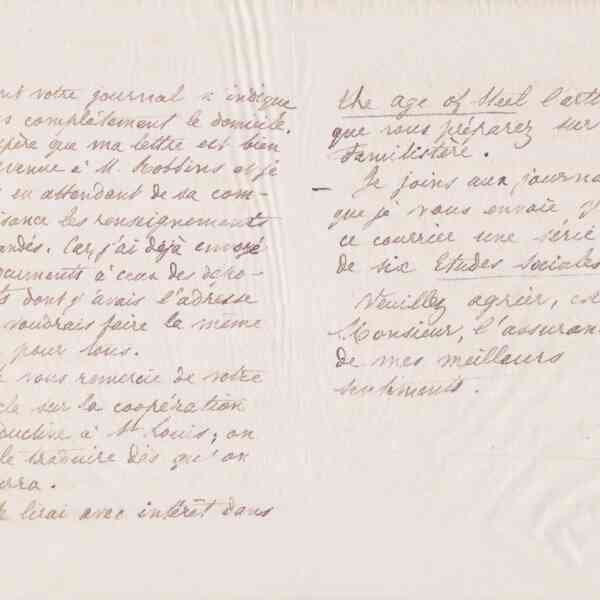 nt votre journal n'indique
s complètement le domicile.
père que ma lettre est bien
venue à M. Robbins et je
en attendant de sa com-
isance les renseignements
andés. Car, j'ai déjà envoyé
cuments à ceux des dépo-
ts dont j'avais l'adresse
voudrais faire la même
pour tous.
vous remercie de votre
cle sur la coopération
ductive à St Louis; on
le traduire dès qu'on
urra.
lirai avec intérêt dans
the age of Steel l'arti
que vous préparez sur
Familistère.
– Je joins aux journa
que je vous envoie
ce courrier une série
de six Etudes sociales
Veuillez agréer, c
Monsieur, l'assuran
de mes meilleurs
sentiments.